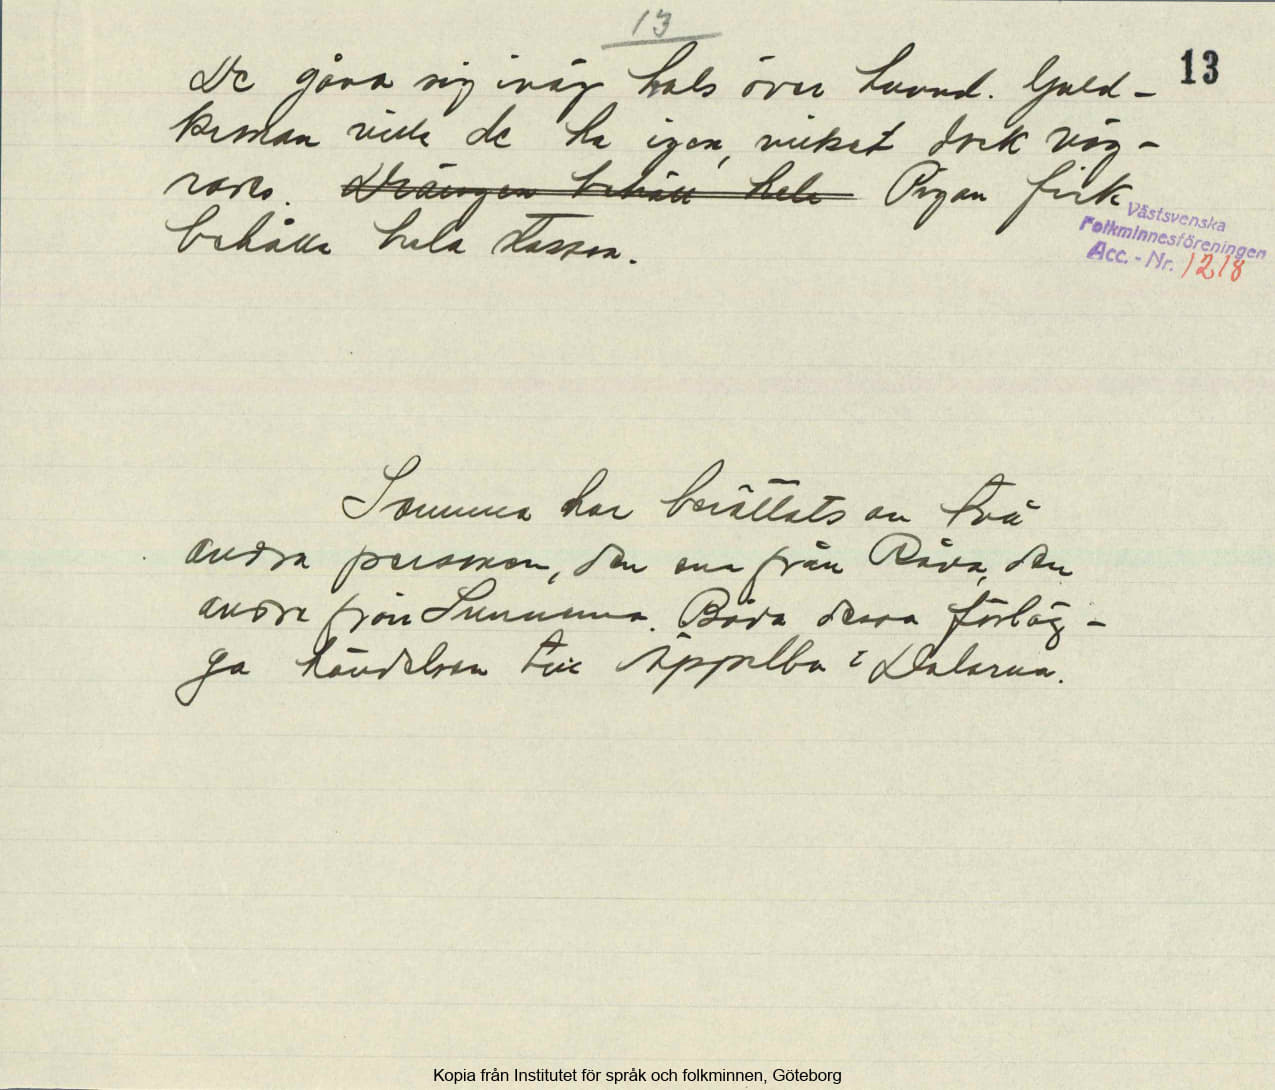 13
13
De gåva sig iväg hals över huvud. Guld-
kronan ville de ha igen, vilket dock väg-
rades. Drängen behöll hela Pigan fick
behålla hela stassen.
Västsvenska
Folkminnesföreningen
Acc. - Nr. 1218
Somma har berättats av två
andra personer, den ena från Råda, den
andra från Sunnemo. Båda dessa förläg-
ga händelsen till Äppelbo i Dalarna.
Kopia från Institutet för språk och folkminnen, Göteborg